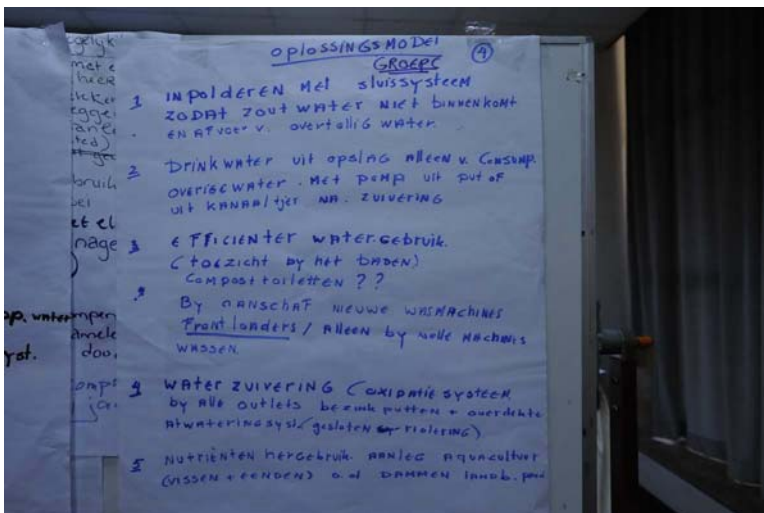 OPLOSSINGSMODEL
GROEPC
4
1 INPOLDEREN MET SLUISSYSTEEM
ZODAT ZOUT WATER NIET BINNENKOMT
EN AFVOER V. OVERTOLLIG WATER.
2 DRINKWATER UIT OPSLAG ALLEEN V. CONSUMP.
OVERIGE WATER. MET POMP UIT PUT OF
UIT KANAALTJES NA. ZUIVERING
3 EFFICIENTER WATERGEBRUIK.
(TOEZICHT BY HET BADEN)
COMPOSTTOILETTEN ??
BY AANSCHAF NIEUWE WASMACHINES
FRONTLOADERS / ALLEEN BY VOLLE MACHINES
WASSEN.
4 WATER ZUIVERING (OXIDATIE SYSTEEM
BY ALLE OUTLETS BEZINK PUTTEN + OVERDEKTE
AFWATERINGSYST. (GESLOTEN RIOLERING)
5 NUTRIËNTEN HERGEBRUIK. AANLEG AQUACULTUUR
(VISSEN + EENDEN) O.A DAMMEN LANDB.
met e
bruik
et el
nage
op. water
yst.